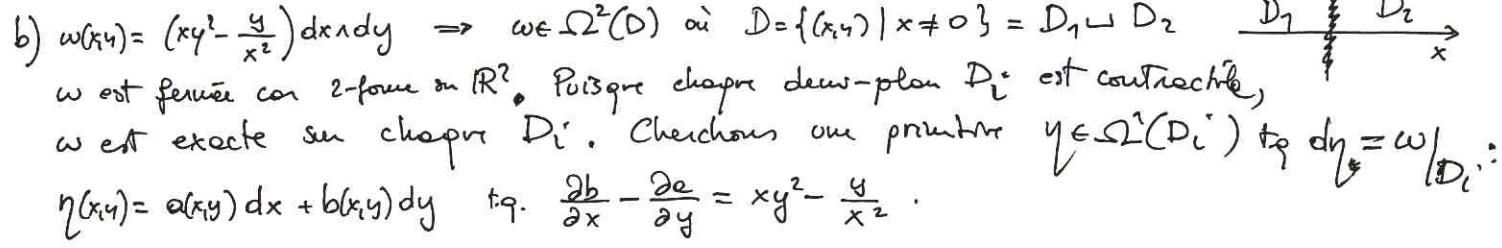 b) ω(x,y) = (xy² - y/x²) dx∧dy ⇒ ω ∈ Ω²(D) où D = {(x,y) | x ≠ 0} = D₁ ⊔ D₂ D₁ D₂ x
ω est fermée car 2-forme sur ℝ². Puisque chaque demi-plan Dᵢ est contractile,
ω est exacte sur chaque Dᵢ. Cherchons une primitive η ∈ Ω¹(Dᵢ) tq dη = ω|_Dᵢ :
η(x,y) = a(x,y) dx + b(x,y) dy tq. ∂b/∂x - ∂a/∂y = xy² - y/x² .